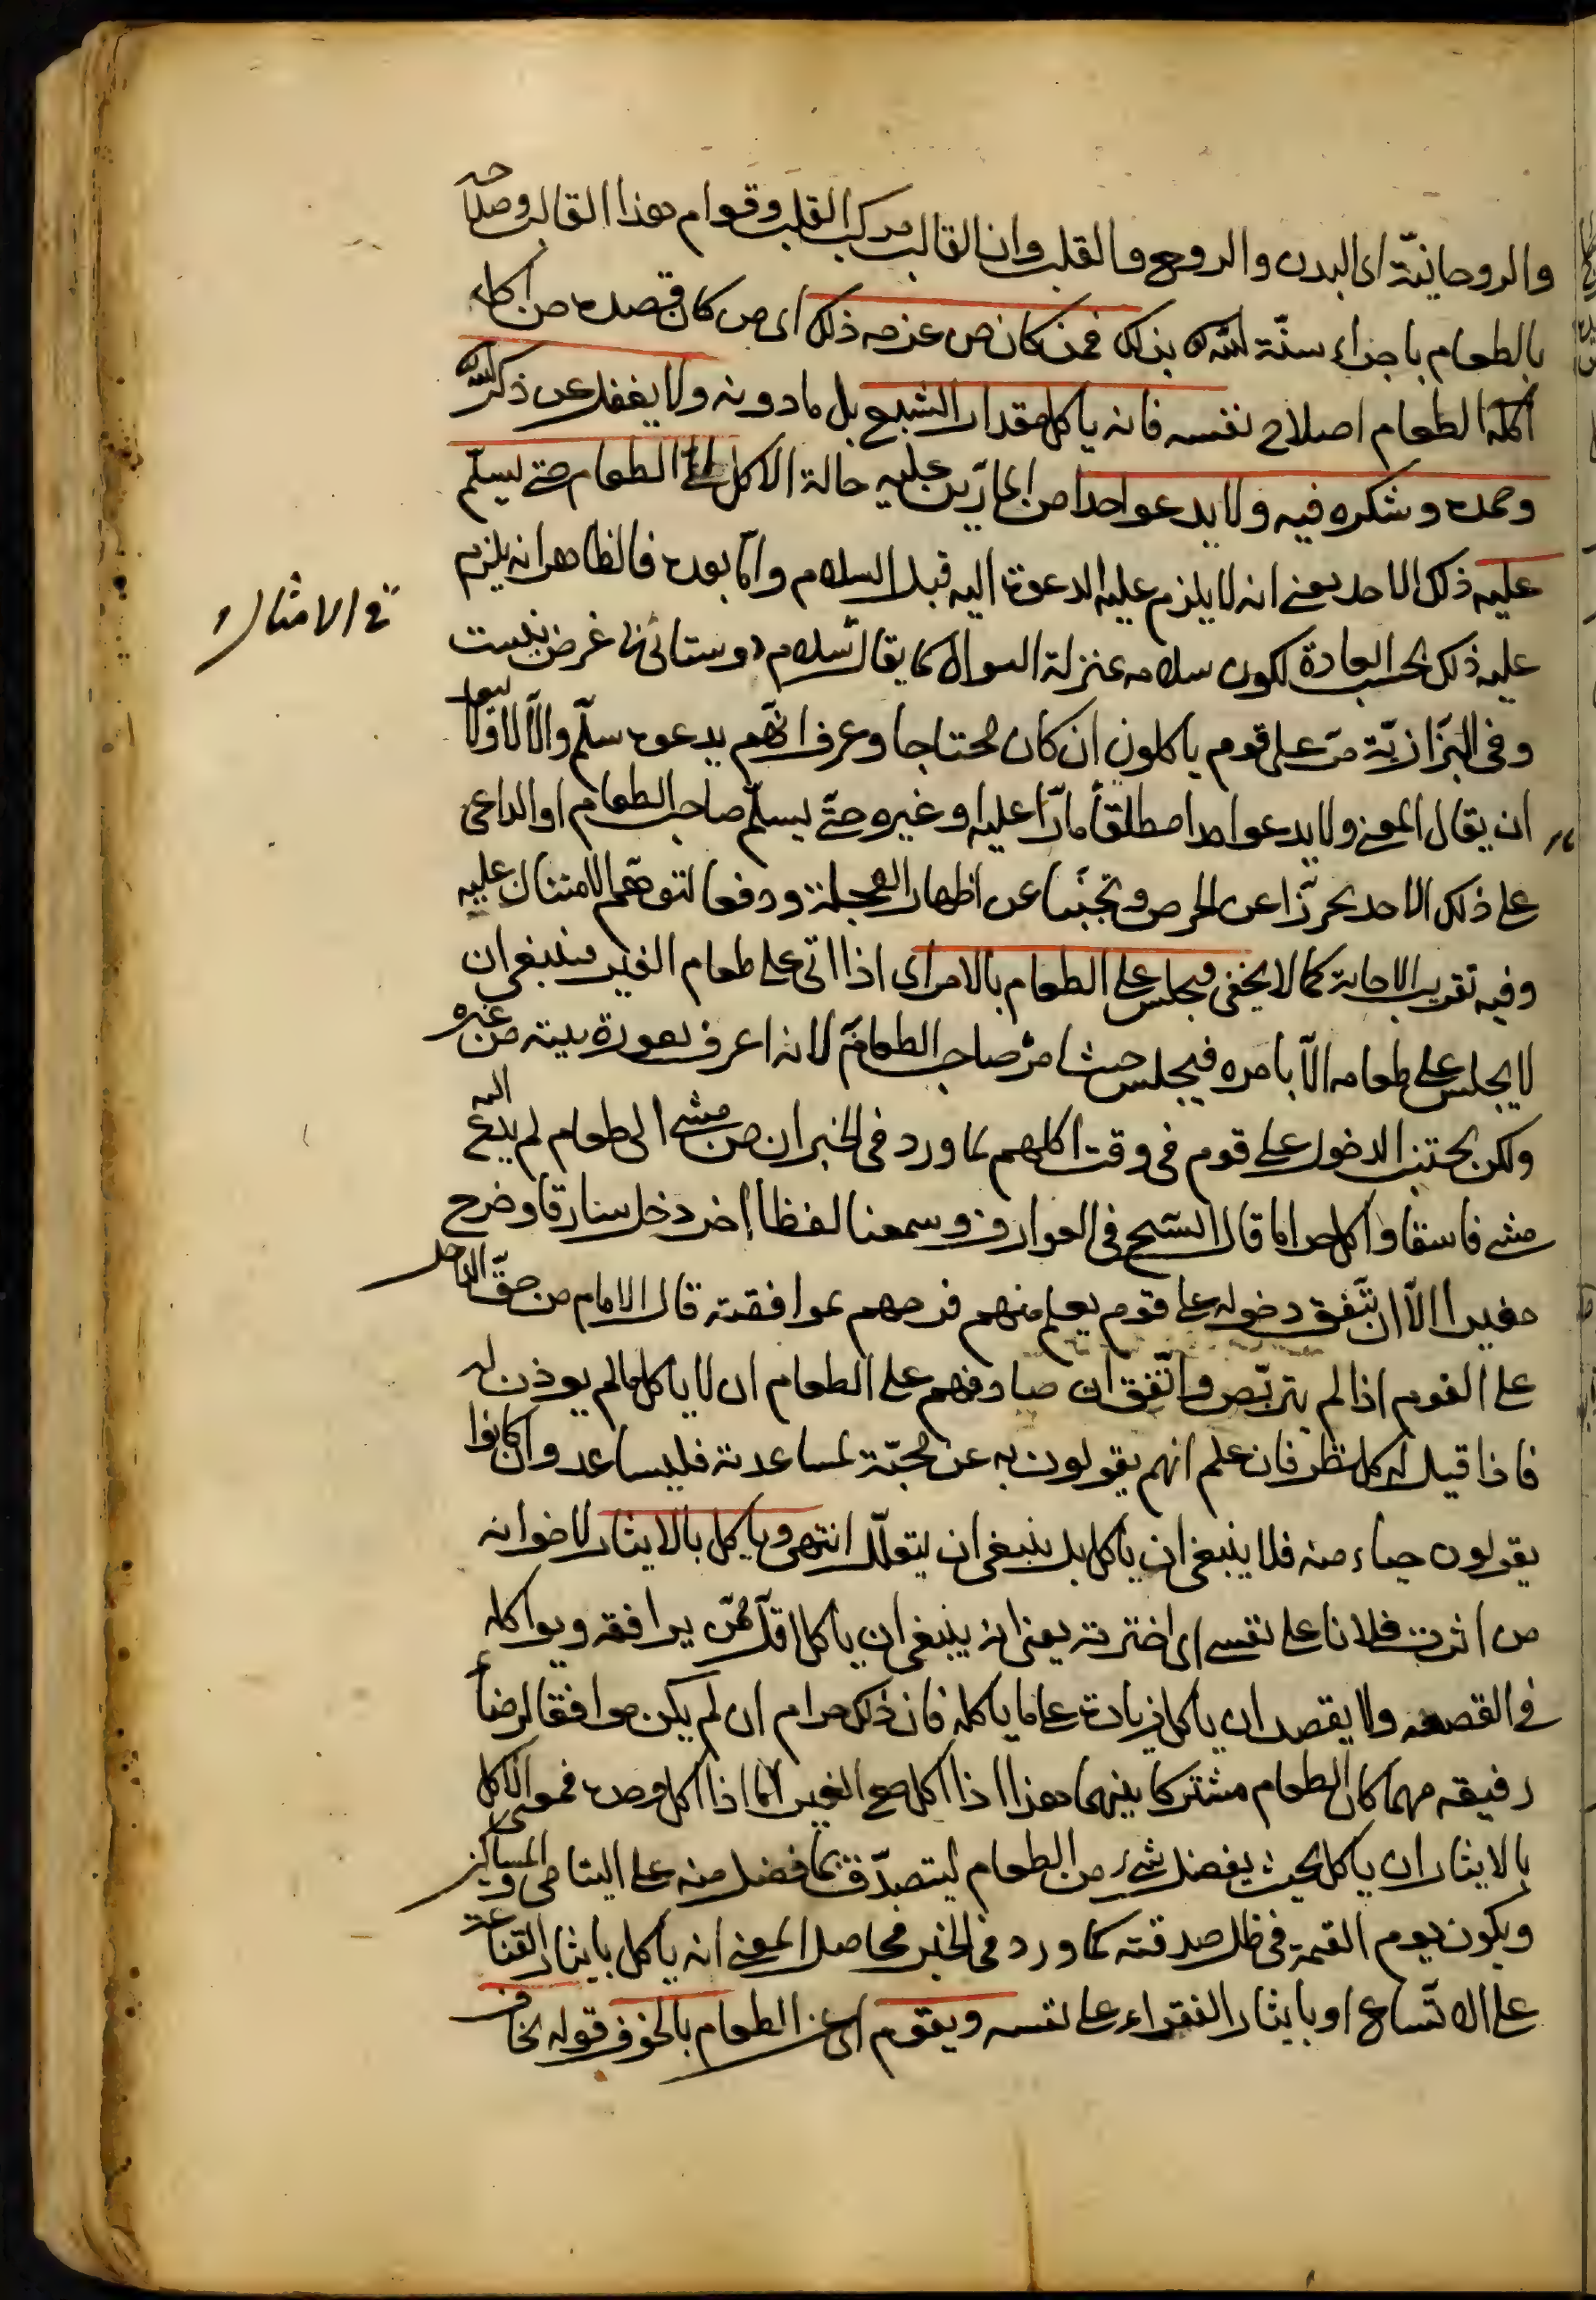 والروحانيّة اى البدن والروح والقلب وان القالب مركب القلب وقوام هذا القالب وصلاحه
بالطعام باجراء سنّة الله بذلك فمن كان من عزمه ذلك اى من كان قصده من اكله
اكله الطعام اصلاح نفسه فانه ياكل مقدار الشبع بل مادونه ولا يغفل عن ذكر الله
وحمده وشكره فيه ولا يدعو احدا من المارّين عليه حالة الاكل الى الطعام حتى يسلّم
عليه ذلك الاحد يعنى انه لا يلزم عليه الدعوة اليه قبل السلام وامّا بعده فالظاهر انه يلزم
عليه ذلك بحسب العادة لكون سلامه بمنزلة السوال كما يقال سلام روستائى بى غرض نيست
فى الامثال
وفى البزّازيّة مرّ على قوم ياكلون ان كان محتاجا وعرف انهم يدعوه سلّم والّا لا ولا يبعد
ان يقال المعنى ولا يدعو احدا مطلقاً مارّا عليه او غيره حتّى يسلّم صاحب الطعام او الداعى
على ذلك الاحد تحرّزا عن الحرص وتجنّبا عن اظهار العجلة ودفعا لتوهّم الامتنان عليه
وفيه تقريب الاجابة كما لا يخفى ويجلس على الطعام بالامر اى اذا اتى على طعام الغير فينبغى ان
لا يجلس على طعامه الّا بامره فيجلس حيث امر صاحب الطعام لانه اعرف بعورة بيته من غيره
ولكن يجتنب الدخول على قوم فى وقت اكلهم لما ورد فى الخبر ان من مشى الى طعام لم يدع اليه
مشى فاسقا واكل حراما قال الشيخ فى العوارف وسمعنا لفظا اخر دخل سارقا وخرج
مغيرا الّا ان يتّفق دخوله على قوم يعلم منهم فرحهم بموافقته قال الامام من حقّ الداخل
على القوم اذا لم يتربّص واتّفق ان صادفهم على الطعام ان لا ياكل ما لم يوذن له
فاذا قيل له كل نظر فان علم انهم يقولون به عن محبّة لمساعدته فليساعد وان كانوا
يقولون حياء منه فلا ينبغى ان ياكل بل ينبغى ان يتعلّل انتهى وياكل بالايثار لاخوانه
من اثرت فلانا على نفسى اى اخترته يعنى انه ينبغى ان ياكل اقلّ ممّن يرافقه ويواكله
فى القصعه ولا يقصد ان ياكل زيادة على ما ياكله فان ذلك حرام ان لم يكن موافقا لرضاء
رفيقه مهما كان الطعام مشتركا بينهما هذا اذا اكل مع الغير امّا اذا اكل وحده فمعنى الاكل
بالايثار ان ياكل بحيث يفضل شىء من الطعام ليتصدّق بما فضل منه على اليتامى والمساكين
ويكون يوم القيمة فى ظل صدقته كما ورد فى الخبر فحاصل المعنى انه ياكل بايثار القناعة
على الاتّساع او بايثار الفقراء على نفسه ويقوم اى عن الطعام بالخوف قوله يخاف